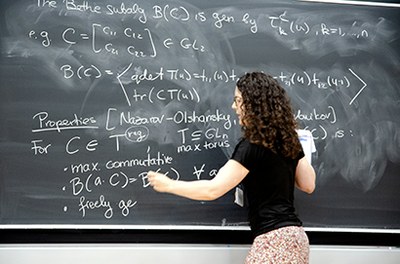 The Bethe subalg B(C) is gen by τₖᶜ(u), k=1,...,n
e.g C = [c₁₁ c₁₂ c₂₁ c₂₂] ∈ GL₂
B(C) = ⟨ qdet T(u) = t₁₁(u) t t₁₂(u) t₂₁(u-1) tr(C T(u)) ⟩
Properties [Nazarov-Olshansky, C) is :
For C ∈ T^reg T ⊆ GLₙ max torus
• max. commutative
• B(a·C) = B ∀ a
• freely ge